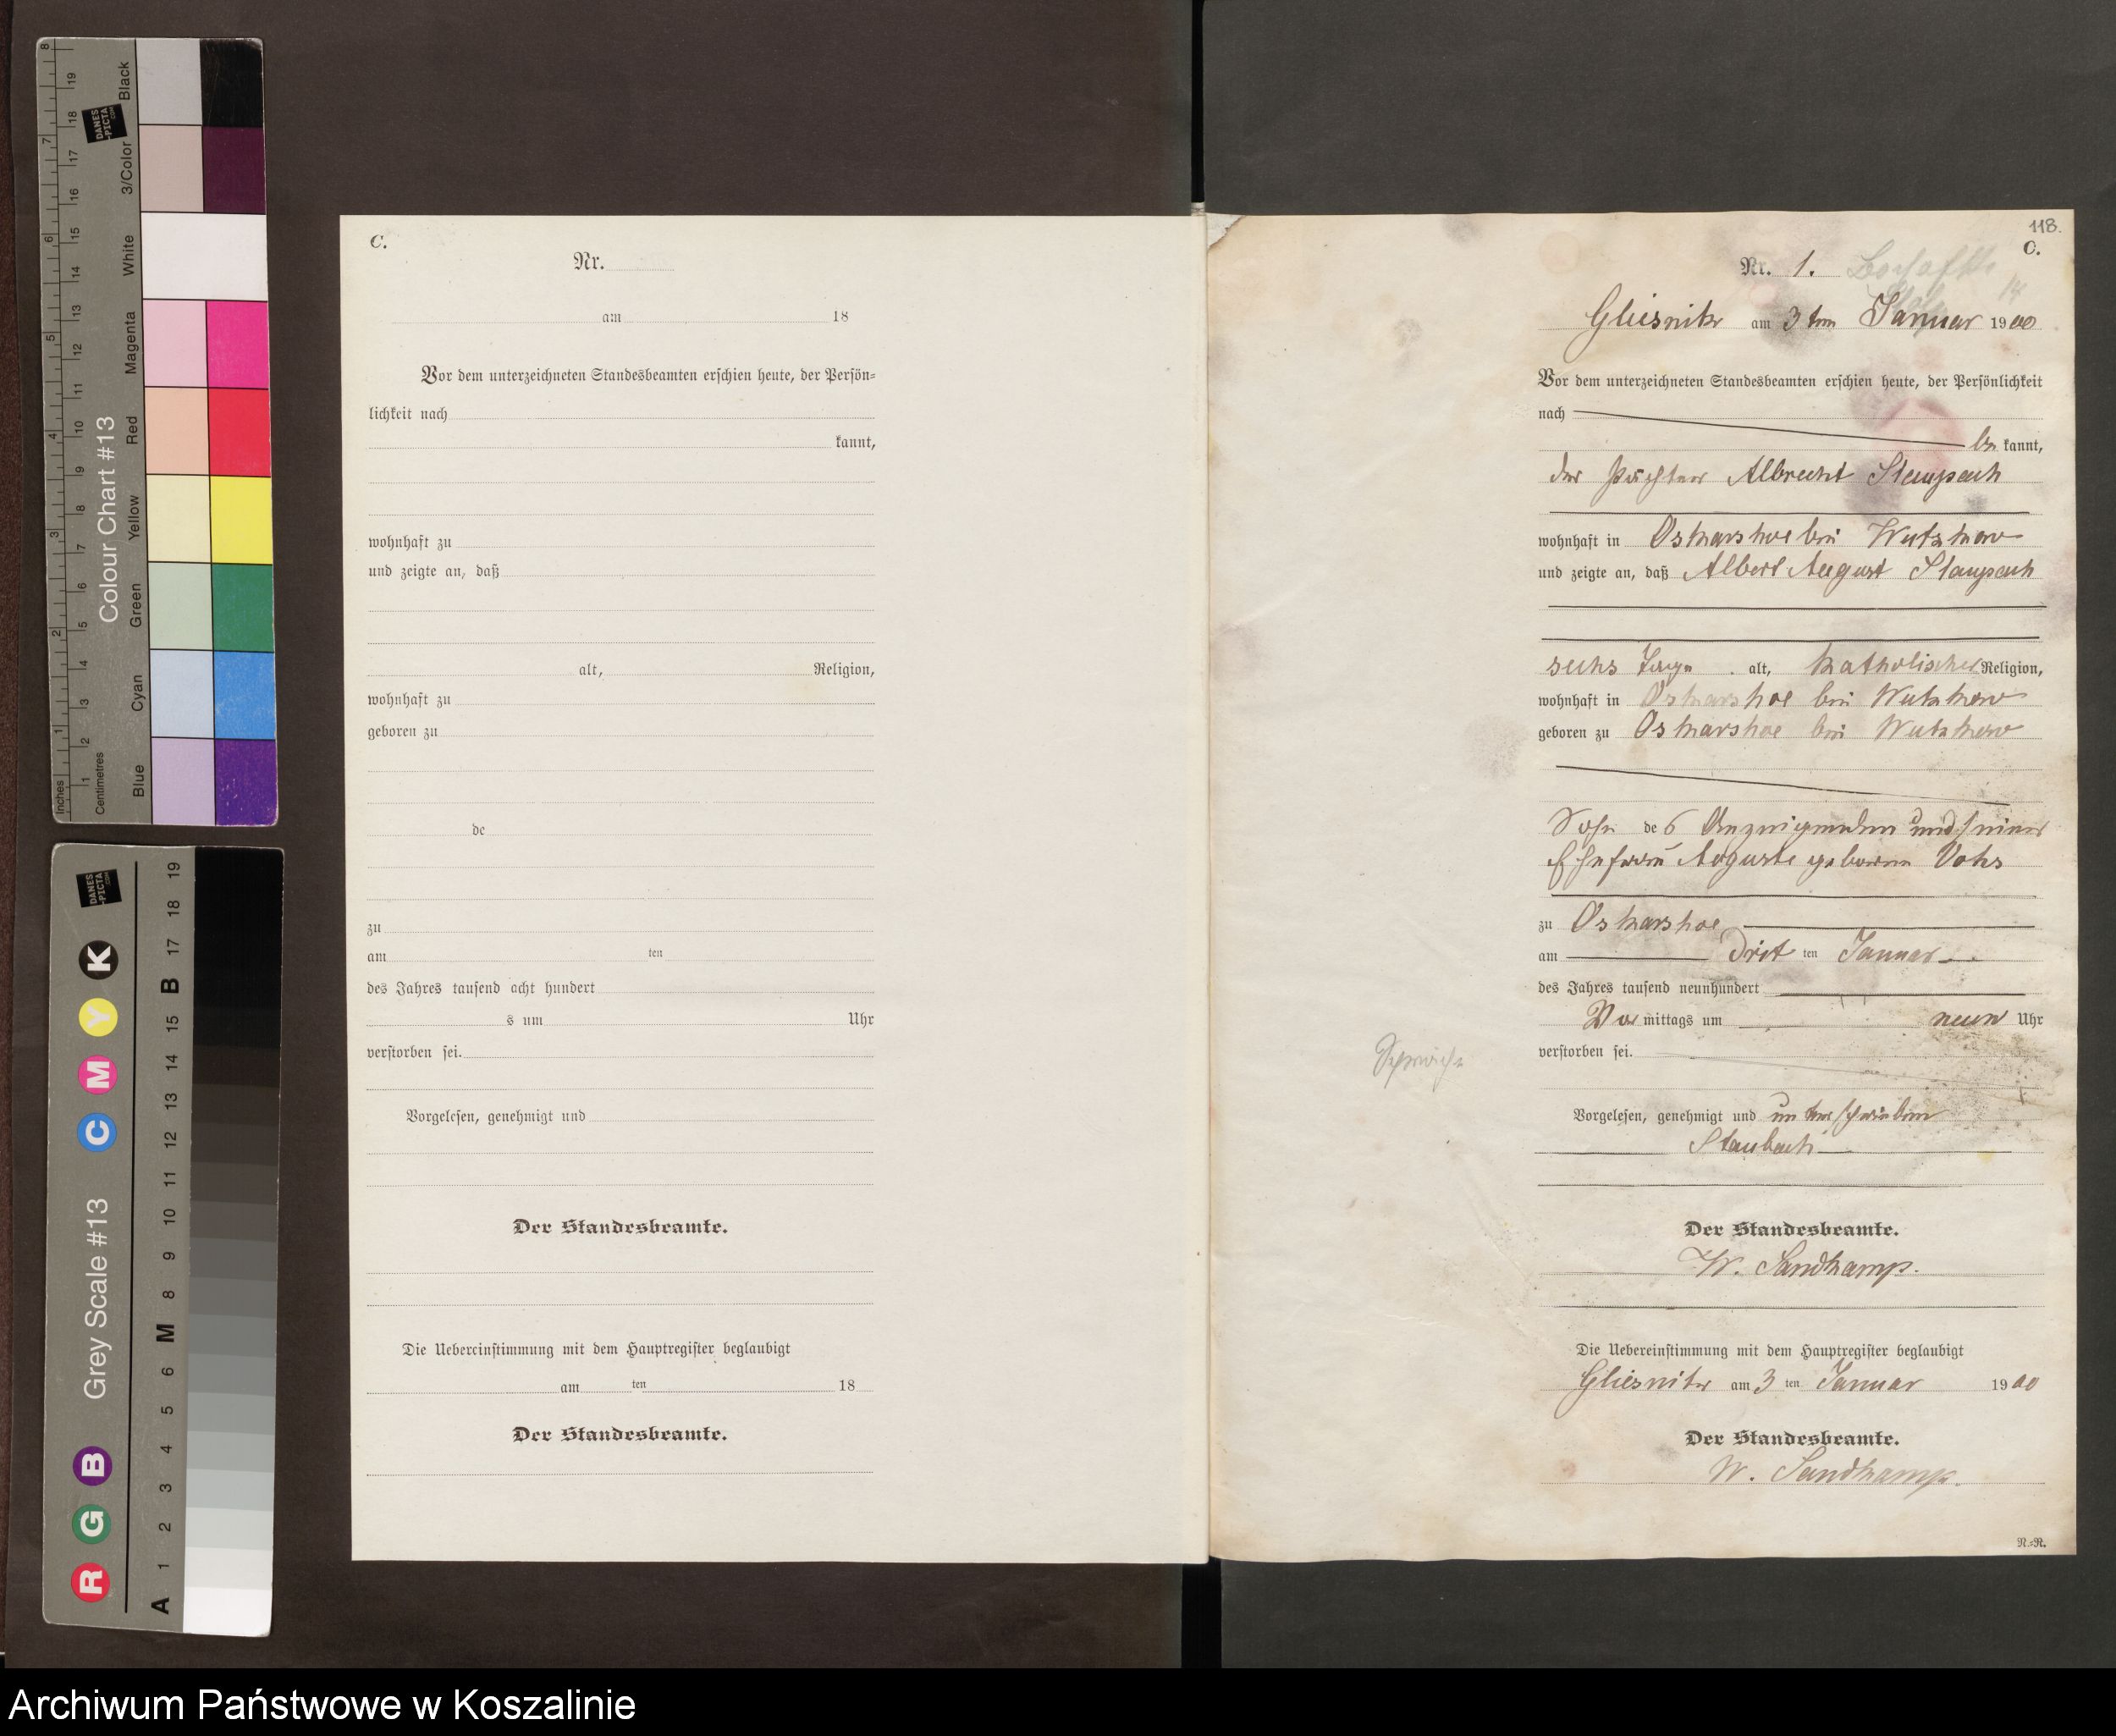 C.
Nr.
am 18
Vor dem unterzeichneten Standesbeamten erschien heute, der Persön=
lichkeit nach
kannt,
wohnhaft zu
und zeigte an, daß
alt, Religion,
wohnhaft zu
geboren zu
de
zu
am ten
des Jahres tausend acht hundert
s um Uhr
verstorben sei.
Vorgelesen, genehmigt und
Der Standesbeamte.
Die Uebereinstimmung mit dem Hauptregister beglaubigt
am ten 18
Der Standesbeamte.
118.
C.
Nr. 1.
14
Gliesnitz am 3ten Januar 1900
Vor dem unterzeichneten Standesbeamten erschien heute, der Persönlichkeit
nach
be kannt,
der Pächter Albrecht
wohnhaft in Oskarshoe bei Wutzkow
und zeigte an, daß Albert August
sechs Tage alt, katholischer Religion,
wohnhaft in Oskarshoe bei Wutzkow
geboren zu Oskarshoe bei Wutzkow
Sohn des Anzeigenden und seiner
Ehefrau Auguste geborene
zu Oskarshoe
am Drit ten Januar
des Jahres tausend neunhundert
Vor mittags um neun Uhr
verstorben sei.
Vorgelesen, genehmigt und unterschrieben
Staubach
Der Standesbeamte.
W. Sandkamp.
Die Uebereinstimmung mit dem Hauptregister beglaubigt
Gliesnitz am 3 ten Januar 1900
Der Standesbeamte.
W. Sandkamp.
N.=N.
Inches
1 2 3 4 5 6 7 8
Centimetres
1 2 3 4 5 6 7 8 9 10 11 12 13 14 15 16 17 18 19
Colour Chart #13
Blue Cyan Green Yellow Red Magenta White 3/Color Black
DANES
-PICTA
.COM
Grey Scale #13
R G B C M Y K
A 1 2 3 4 5 6 M 8 9 10 11 12 13 14 15 B 17 18 19
DANES
-PICTA
.COM
Archiwum Państwowe w Koszalinie